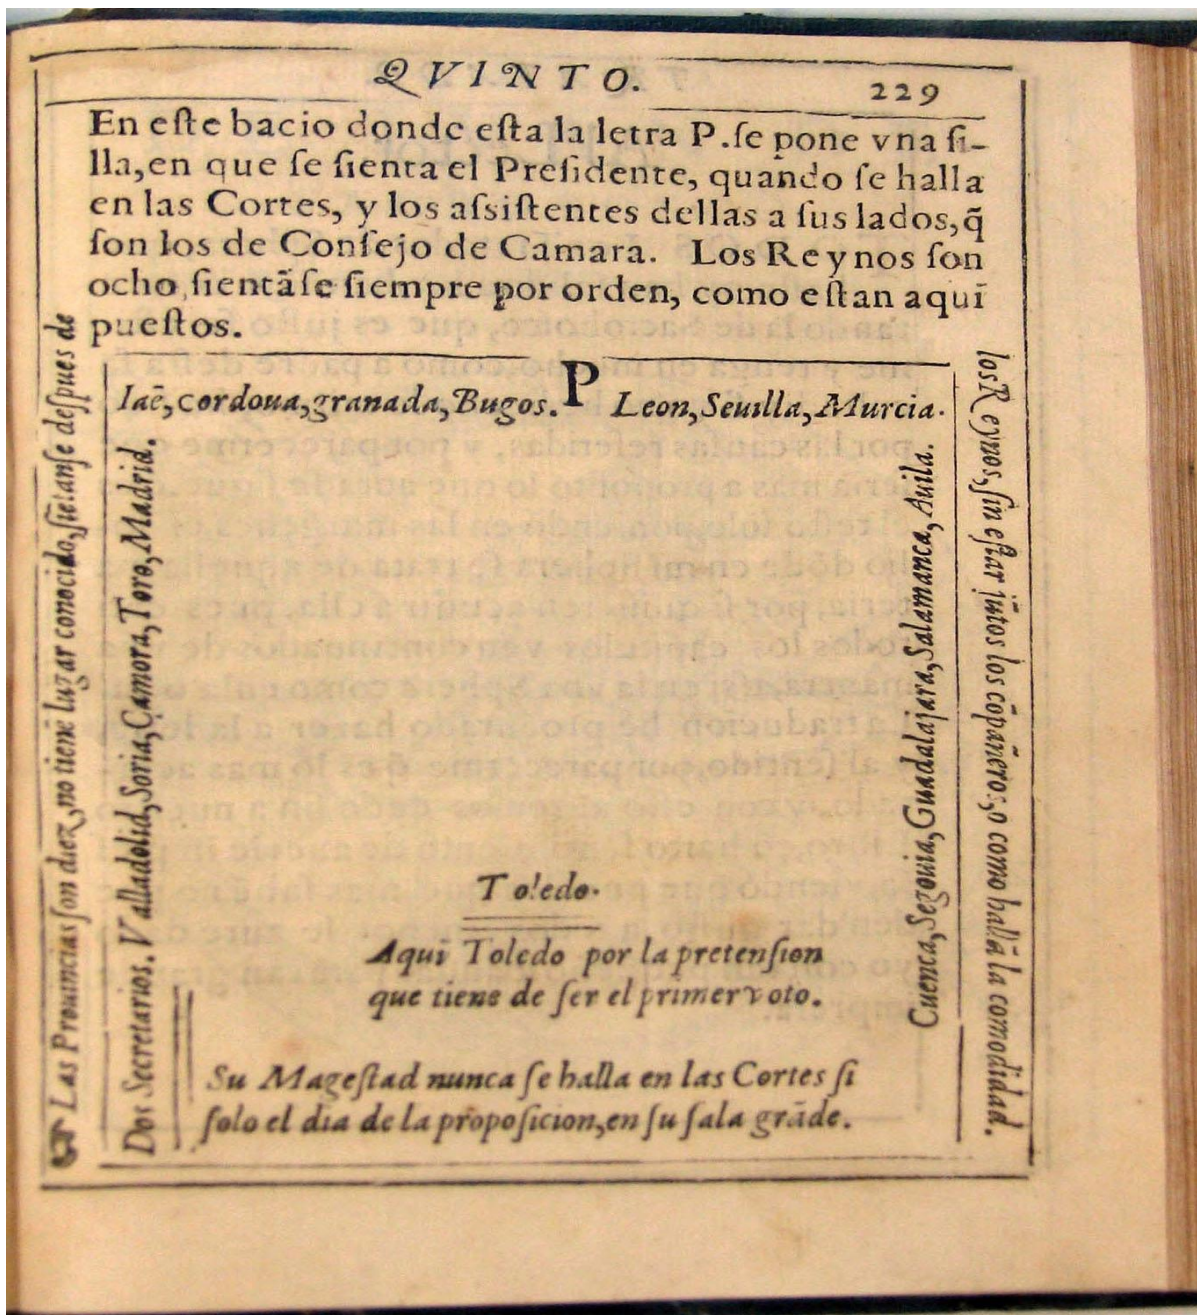 QVINTO.
229
En eſte bacio donde eſta la letra P.ſe pone vna ſi-
lla,en que ſe ſienta el Preſidente, quando ſe halla
en las Cortes, y los aſsiſtentes dellas a ſus lados,q̃
ſon los de Conſejo de Camara. Los Reynos ſon
ocho,ſientãſe ſiempre por orden, como eſtan aqui
pueſtos.
Iaẽ,cordoua,granada,Bugos. P Leon,Seuilla,Murcia.
Las Prouincias ſon diez,no tiene lugar conocido,ſiẽtanſe deſpues de
Dos Secretarios. Valladolid,Soria,Çamora,Toro,Madrid.
Cuenca,Segouia,Guadalajara,Salamanca,Auila.
los Reynos,ſin eſtar jũtos los cõpañeros,o como hallã la comodidad.
Toledo.
Aqui Toledo por la pretenſion
que tiene de ſer el primer voto.
Su Mageſtad nunca ſe halla en las Cortes ſi
ſolo el dia de la propoſicion,en ſu ſala grãde.